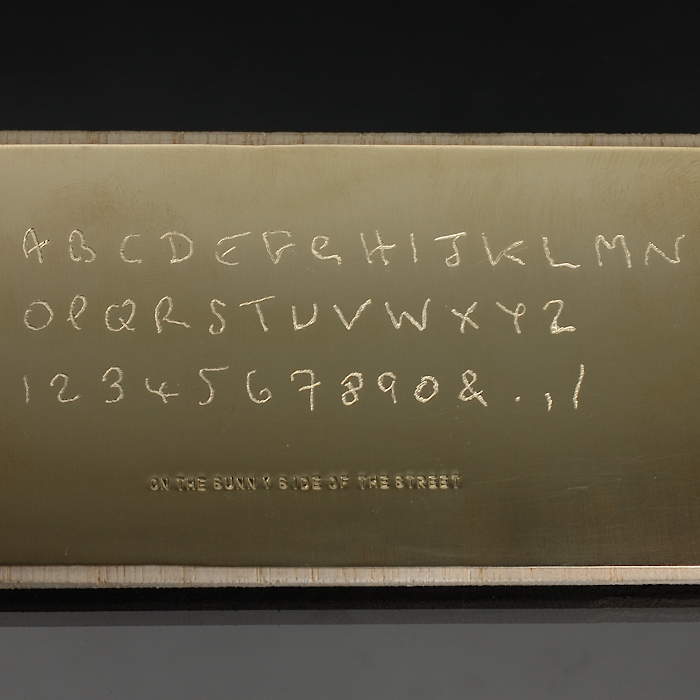 A B C D E F G H I J K L M N
O P Q R S T U V W X Y Z
1 2 3 4 5 6 7 8 9 0 & . , /
ON THE SUNNY SIDE OF THE STREET